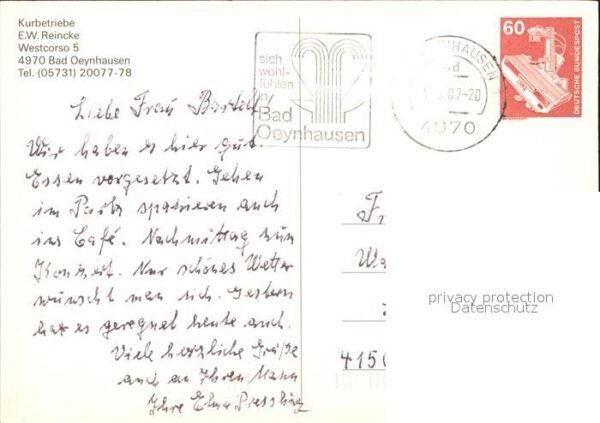 Kurbetriebe
E.W. Reincke
Westcorso 5
4970 Bad Oeynhausen
Tel. (05731) 20077-78
sich
wohl-
fühlen
Bad
Oeynhausen
NHAUSEN 1
87-20
4970
60
DEUTSCHE BUNDESPOST
Liebe Frau
Wir haben es hier gut.
Essen vorgesetzt. Gehen
im Park spazieren auch
ins Café. Nachmittag zum
Konzert. Nur schönes Wetter
wünscht man sich. Gestern
hat es geregnet heute auch.
Viele herzliche Grüße
auch an Ihren Mann
Ihre
F
Wa
415
privacy protection
Datenschutz